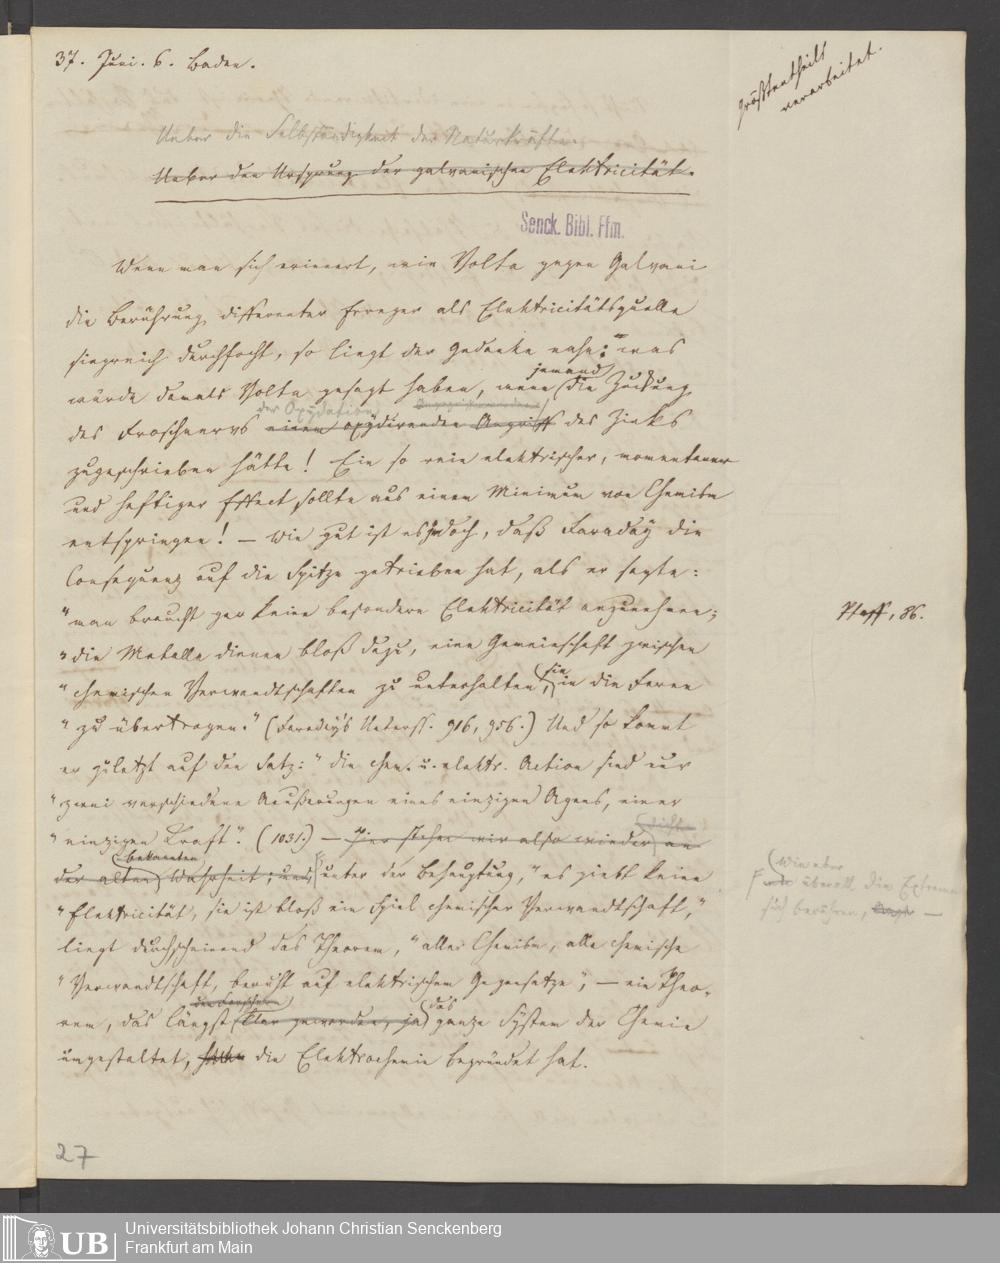 37. Juni. 6. Baden.
größtentheils
verarbeitet.
Ueber die Selbständigkeit der Naturkräfte.
Ueber den Ursprung der galvanischen Elektricität.
Senck. Bibl. Ffm.
Wenn man sich erinnert, wie Volta gegen Galvani
die Berührung differenter Erreger als Elektricitätsquelle
siegreich durchfocht, so liegt der Gedanke nahe: was
würde damals Volta gesagt haben, wenn jemand die Zuckung
der Oxydation
des Froschnervs einem oxydirenden Angriff des Zinks
zugeschrieben hätte! Ein so rein elektrischer, momentaner
und heftiger Effect sollte aus einem Minimum von Chemism
entspringen! – Wie gut ist es jedoch, daß Faraday die
Consequenz auf die Spitze getrieben hat, als er sagte:
"man braucht gar keine besondere Elektricität anzunehmen;
Pfaff, 86.
"die Metalle dienen bloß dazu, eine Gemeinschaft zwischen
"chemischen Verwandtschaften zu unterhalten, sie in die Ferne
"zu übertragen." (Faraday's Unterss. 916, 956.) Und so kommt
er zuletzt auf den Satz: "die chem. u. elektr. Action sind nur
"zwei verschiedene Aeußerungen eines einzigen Agens, einer
"einzigen Kraft". (1031.) – Hier stehen wir also wieder an
der alten bekannten Wahrheit; und unter der Behauptung, "es giebt keine
wie aber
überall die Extreme
sich berühren, –
"Elektricität, sie ist bloß ein Spiel chemischer Verwandtschaft,"
liegt durchscheinend das Theorem, "aller Chemism, alle chemische
"Verwandtschaft, beruht auf elektrischem Gegensatze"; – ein Theo-
den Forschern
rem, das längst klar geworden, ja das ganze System der Chemie
umgestaltet, die Elektrochemie begründet hat.
27
UB
Universitätsbibliothek Johann Christian Senckenberg
Frankfurt am Main